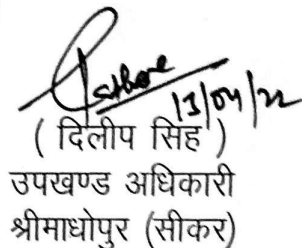 Rathore
13/04/22
( दिलीप सिंह )
उपखण्ड अधिकारी
श्रीमाधोपुर (सीकर)